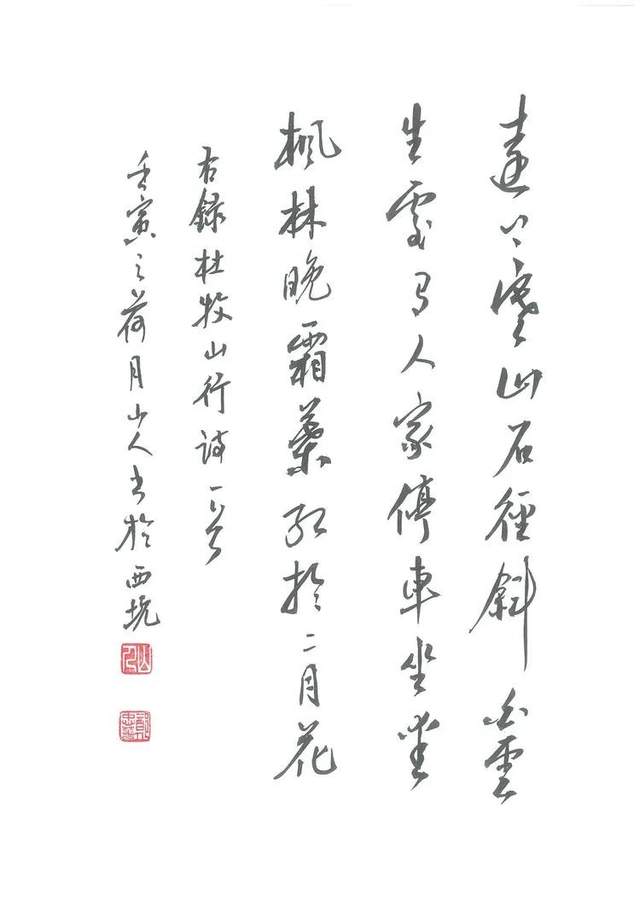 遠上寒山石徑斜白雲
生處有人家停車坐愛
楓林晚霜葉紅於二月花
右錄杜牧山行詩一首
壬寅之荷月山人書於西
山人